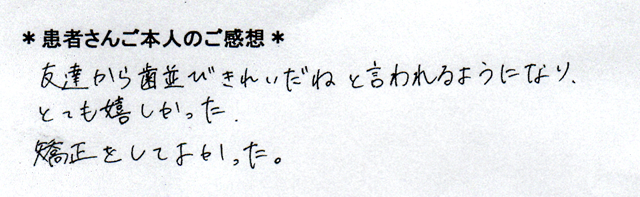 ＊患者さんご本人のご感想＊
友達から歯並びきれいだね と言われるようになり、
とても嬉しかった.
矯正をしてよかった。